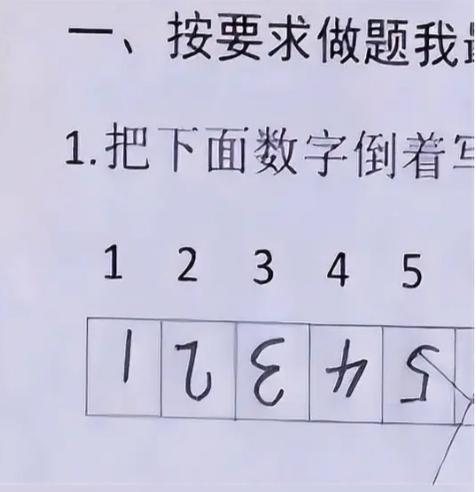 一、按要求做题我
1.把下面数字倒着写
1 2 3 4 5
1 2 3 4 5